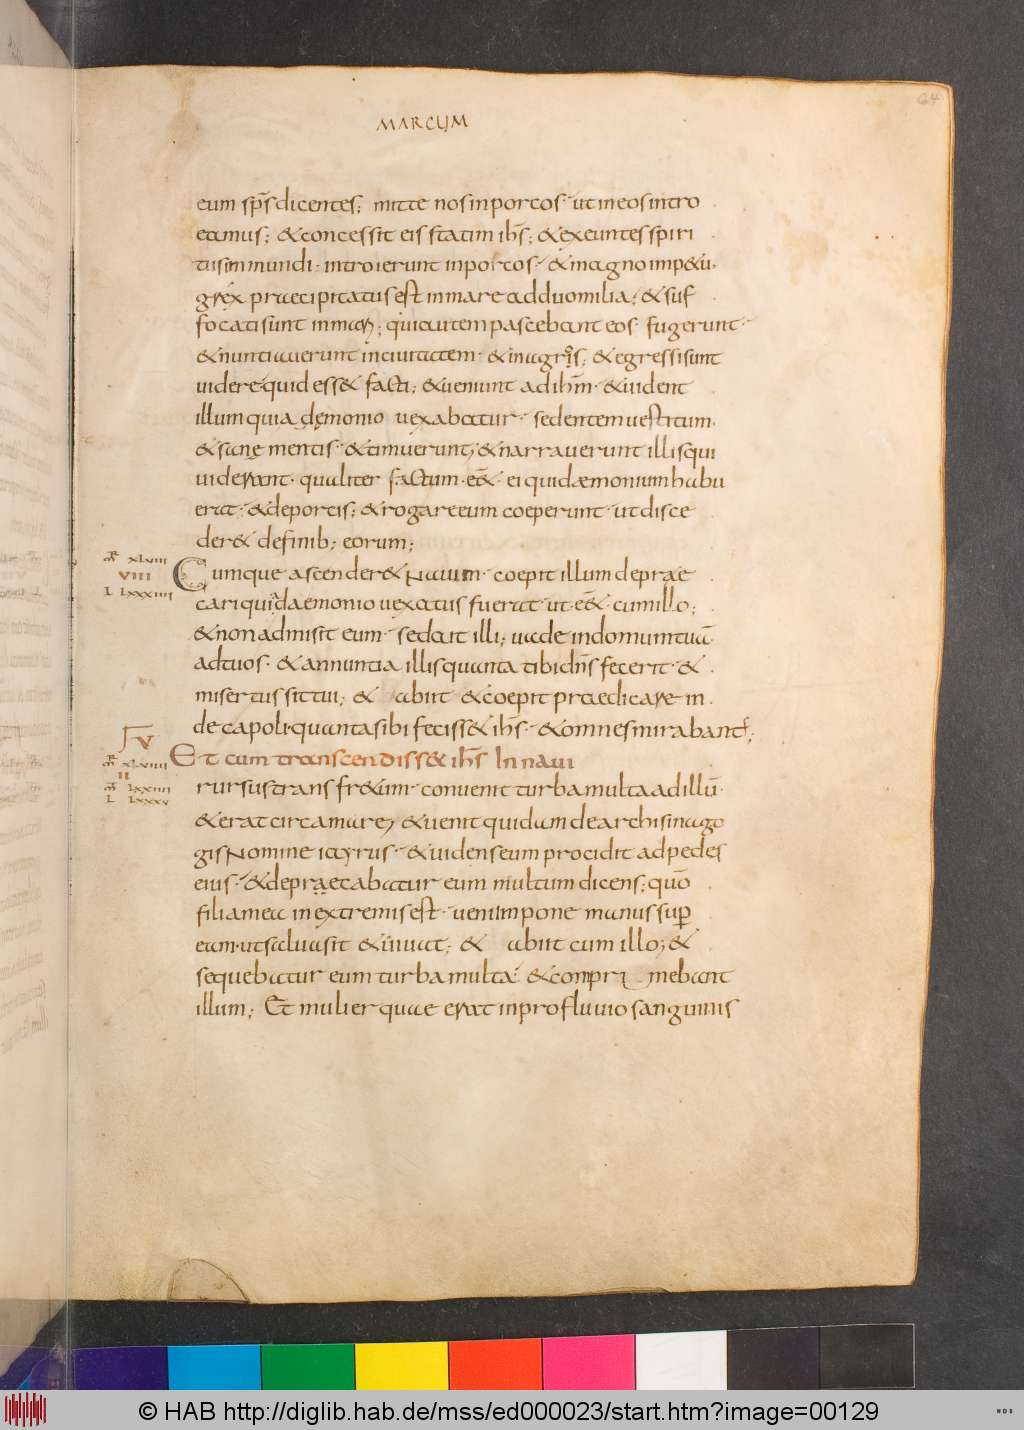 64
MARCUM
eum sp̄s dicentes; mitte nos in porcos· ut in eos intro
eamus; & concessit eis statim ih̄s; & exeuntes spiri
tus inmundi· introierunt in porcos· & magno imp&ū·
grex praecipitatus est in mare ad duo milia; & suf
focati sunt in mari; qui autem pascebant eos· fugerunt·
& nuntiauerunt in ciuitatem· & in agros; & egressi sunt
uidere quid ess& facti; & ueniunt ad ihm̄· & uident
illum qui a demonio uexabatur· sedentem uestitum·
& sanę mentis· & timuerunt; & narrauerunt illis qui
uiderant· qualiter factum· e&̄· ei qui daemonium habu
erat· & de porcis; & rogare eum coeperunt· ut disce
der& de finib; eorum;
mr xlviii
viii
L lxxxiiii
Cumque ascender& nauim· coepit illum deprae
cari qui a daemonio uexatus fuerat· ut· e&̄· cum illo;
& non admisit eum· sed ait illi; uade in domum tuā
ad tuos· & annuntia illis quanta tibi dn̄s fecerit· &
misertus sit tui; & abiit & coepit praedicare in
decapoli· quanta sibi feciss& ih̄s· & omnes mirabant̄;
v
mr xlviiii
ii
mt lxxiiii
L lxxxv
Et cum transcendiss& ih̄s In naui
rursus trans fr&um· conuenit turba multa ad illū·
& erat circa mare; & uenit quidam de archisinago
gis nomine iayrus· & uidens eum procidit ad pedes
eius· & depraecabatur eum multum dicens; quō
filia mea in extremis est· ueni impone manus sup̄
eam· ut salua sit & uiuat; & abiit cum illo; &
sequebatur eum turba multa· & compri mebant
illum; Et mulier quae erat in profluuio sanguinis
© HAB http://diglib.hab.de/mss/ed000023/start.htm?image=00129
WDB